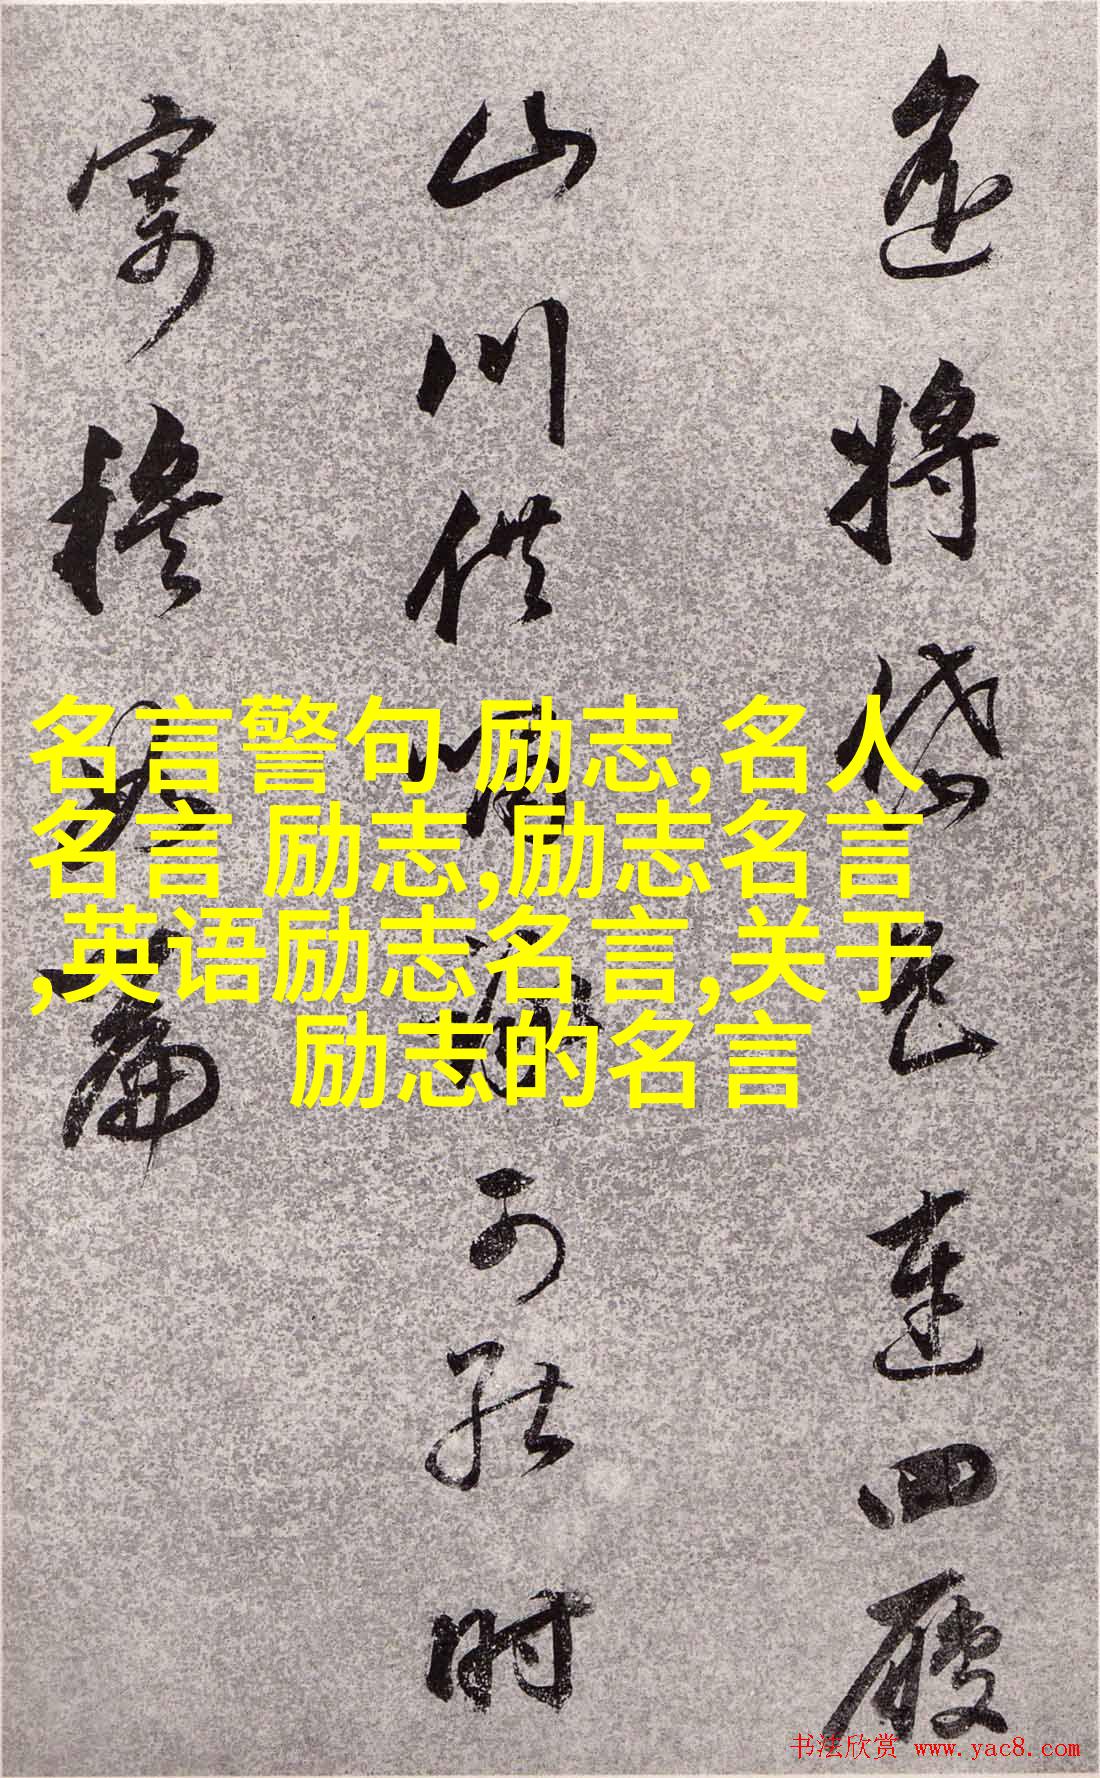 名言警句 励志,名人
名言 励志,励志名言
,英语励志名言,关于
励志的名言
將岱色連四履
山川供嘯可能时
寄篇
书法欣赏 www.yac8.com